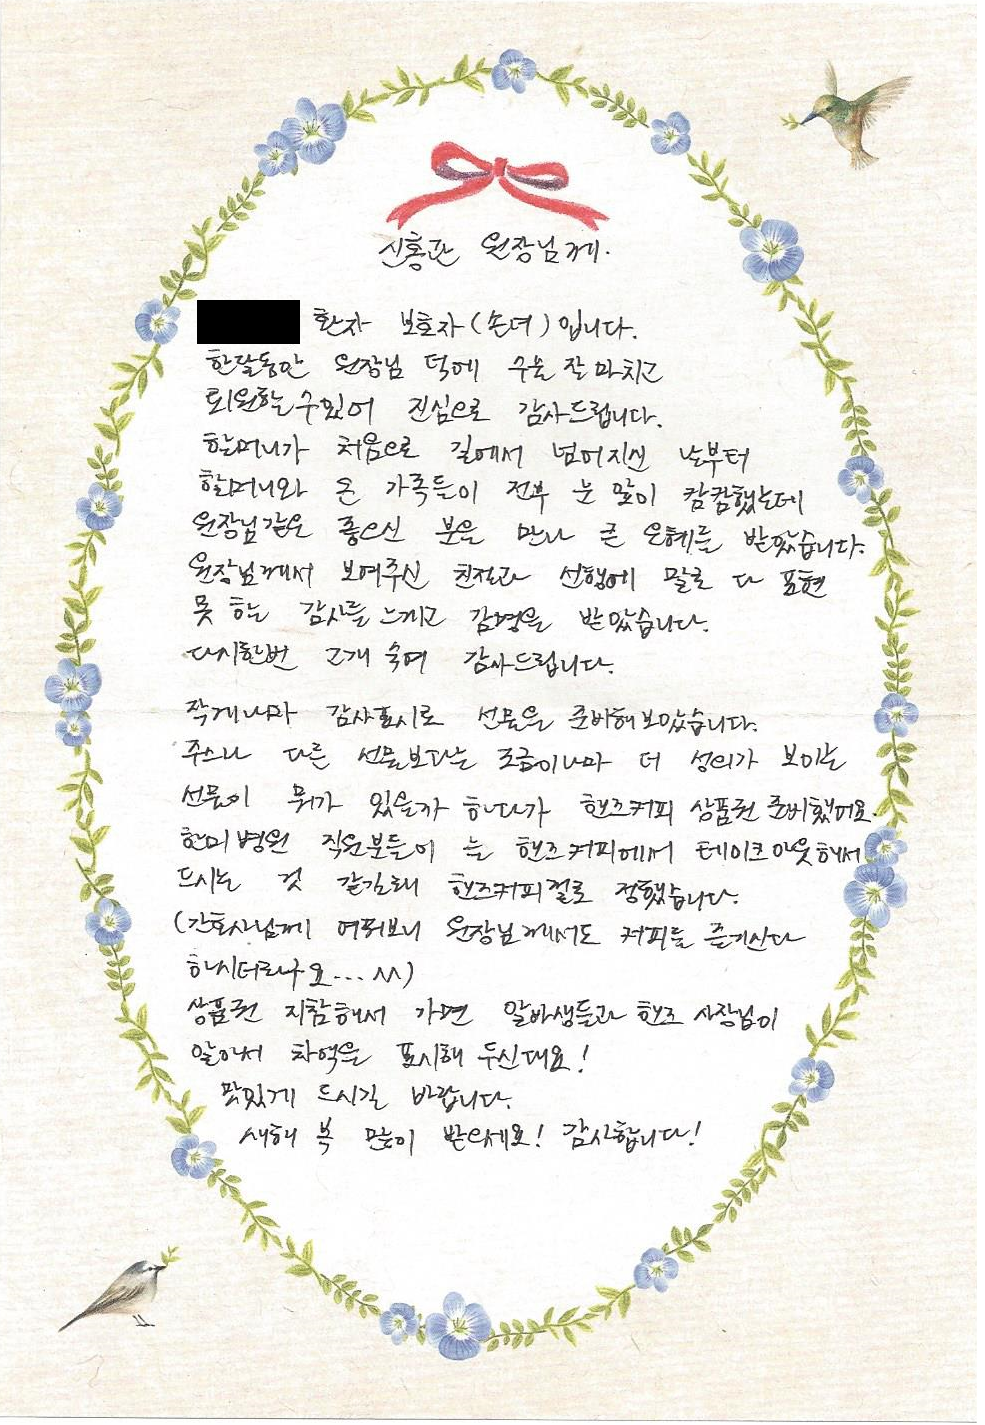 신홍관 원장님께.
환자 보호자(손녀)입니다.
한달동안 원장님 덕에 수술 잘 마치고
퇴원할 수 있어 진심으로 감사드립니다.
할머니가 처음으로 길에서 넘어지신 날부터
할머니와 온 가족들이 전부 눈 앞이 캄캄했는데
원장님같은 좋으신 분을 만나 큰 은혜를 받았습니다.
원장님께서 보여주신 친절과 선행에 말로 다 표현
못 하는 감사를 느끼고 감명을 받았습니다.
다시한번 고개 숙여 감사드립니다.
작게나마 감사표시로 선물을 준비해보았습니다.
주스나 다른 선물보다는 조금이나마 더 성의가 보이는
선물이 뭐가 있을까 하다가 핸즈커피 상품권 준비했어요.
한미병원 직원분들이 늘 핸즈커피에서 테이크아웃해서
드시는 것 같길래 핸즈커피걸로 정했습니다.
(간호사님께 여쭤보니 원장님께서도 커피를 즐기신다
하시더라구요... ^^)
상품권 지참해서 가면 알바생들과 핸즈 사장님이
알아서 차액을 표시해 두신대요!
맛있게 드시길 바랍니다.
새해 복 많이 받으세요! 감사합니다!